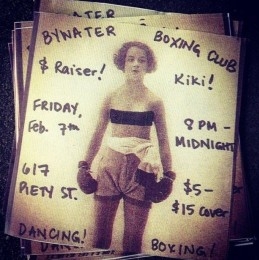 BYWATER
BOXING CLUB
$ Raiser!
Kiki!
FRIDAY,
Feb. 7th
8 PM -
MIDNIGHT
617
PIETY ST.
$5 -
$15 cover
DANCING!
BOXING!